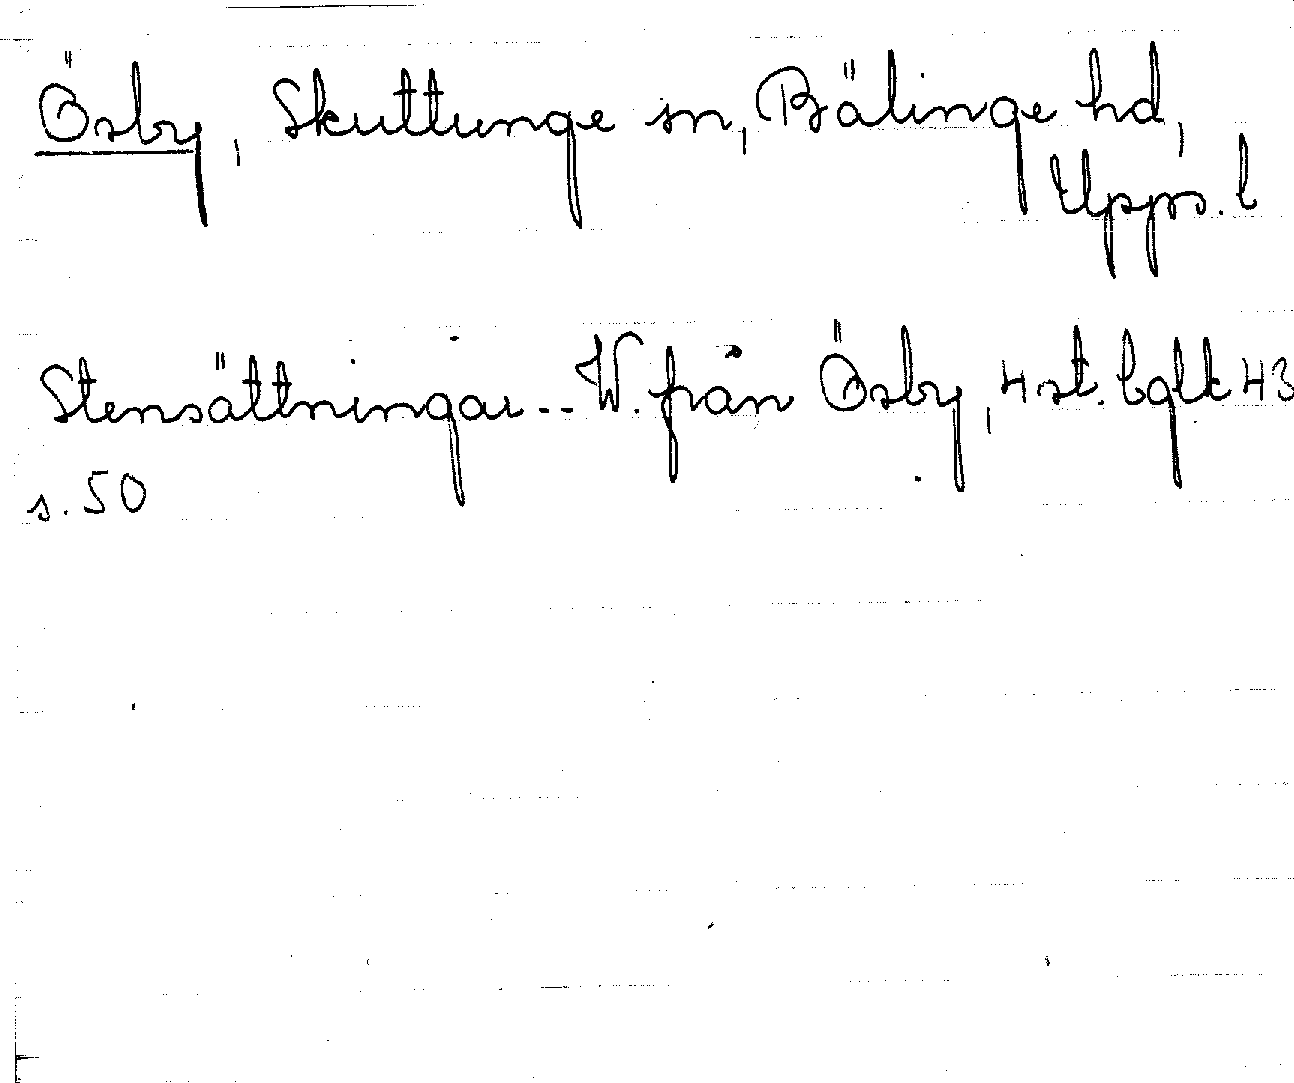 Ösby, Skuttunge sn, Bälinge hd,
Upps. l
Stensättningar -- W. från Ösby, 4 st. bglk 43
s. 50